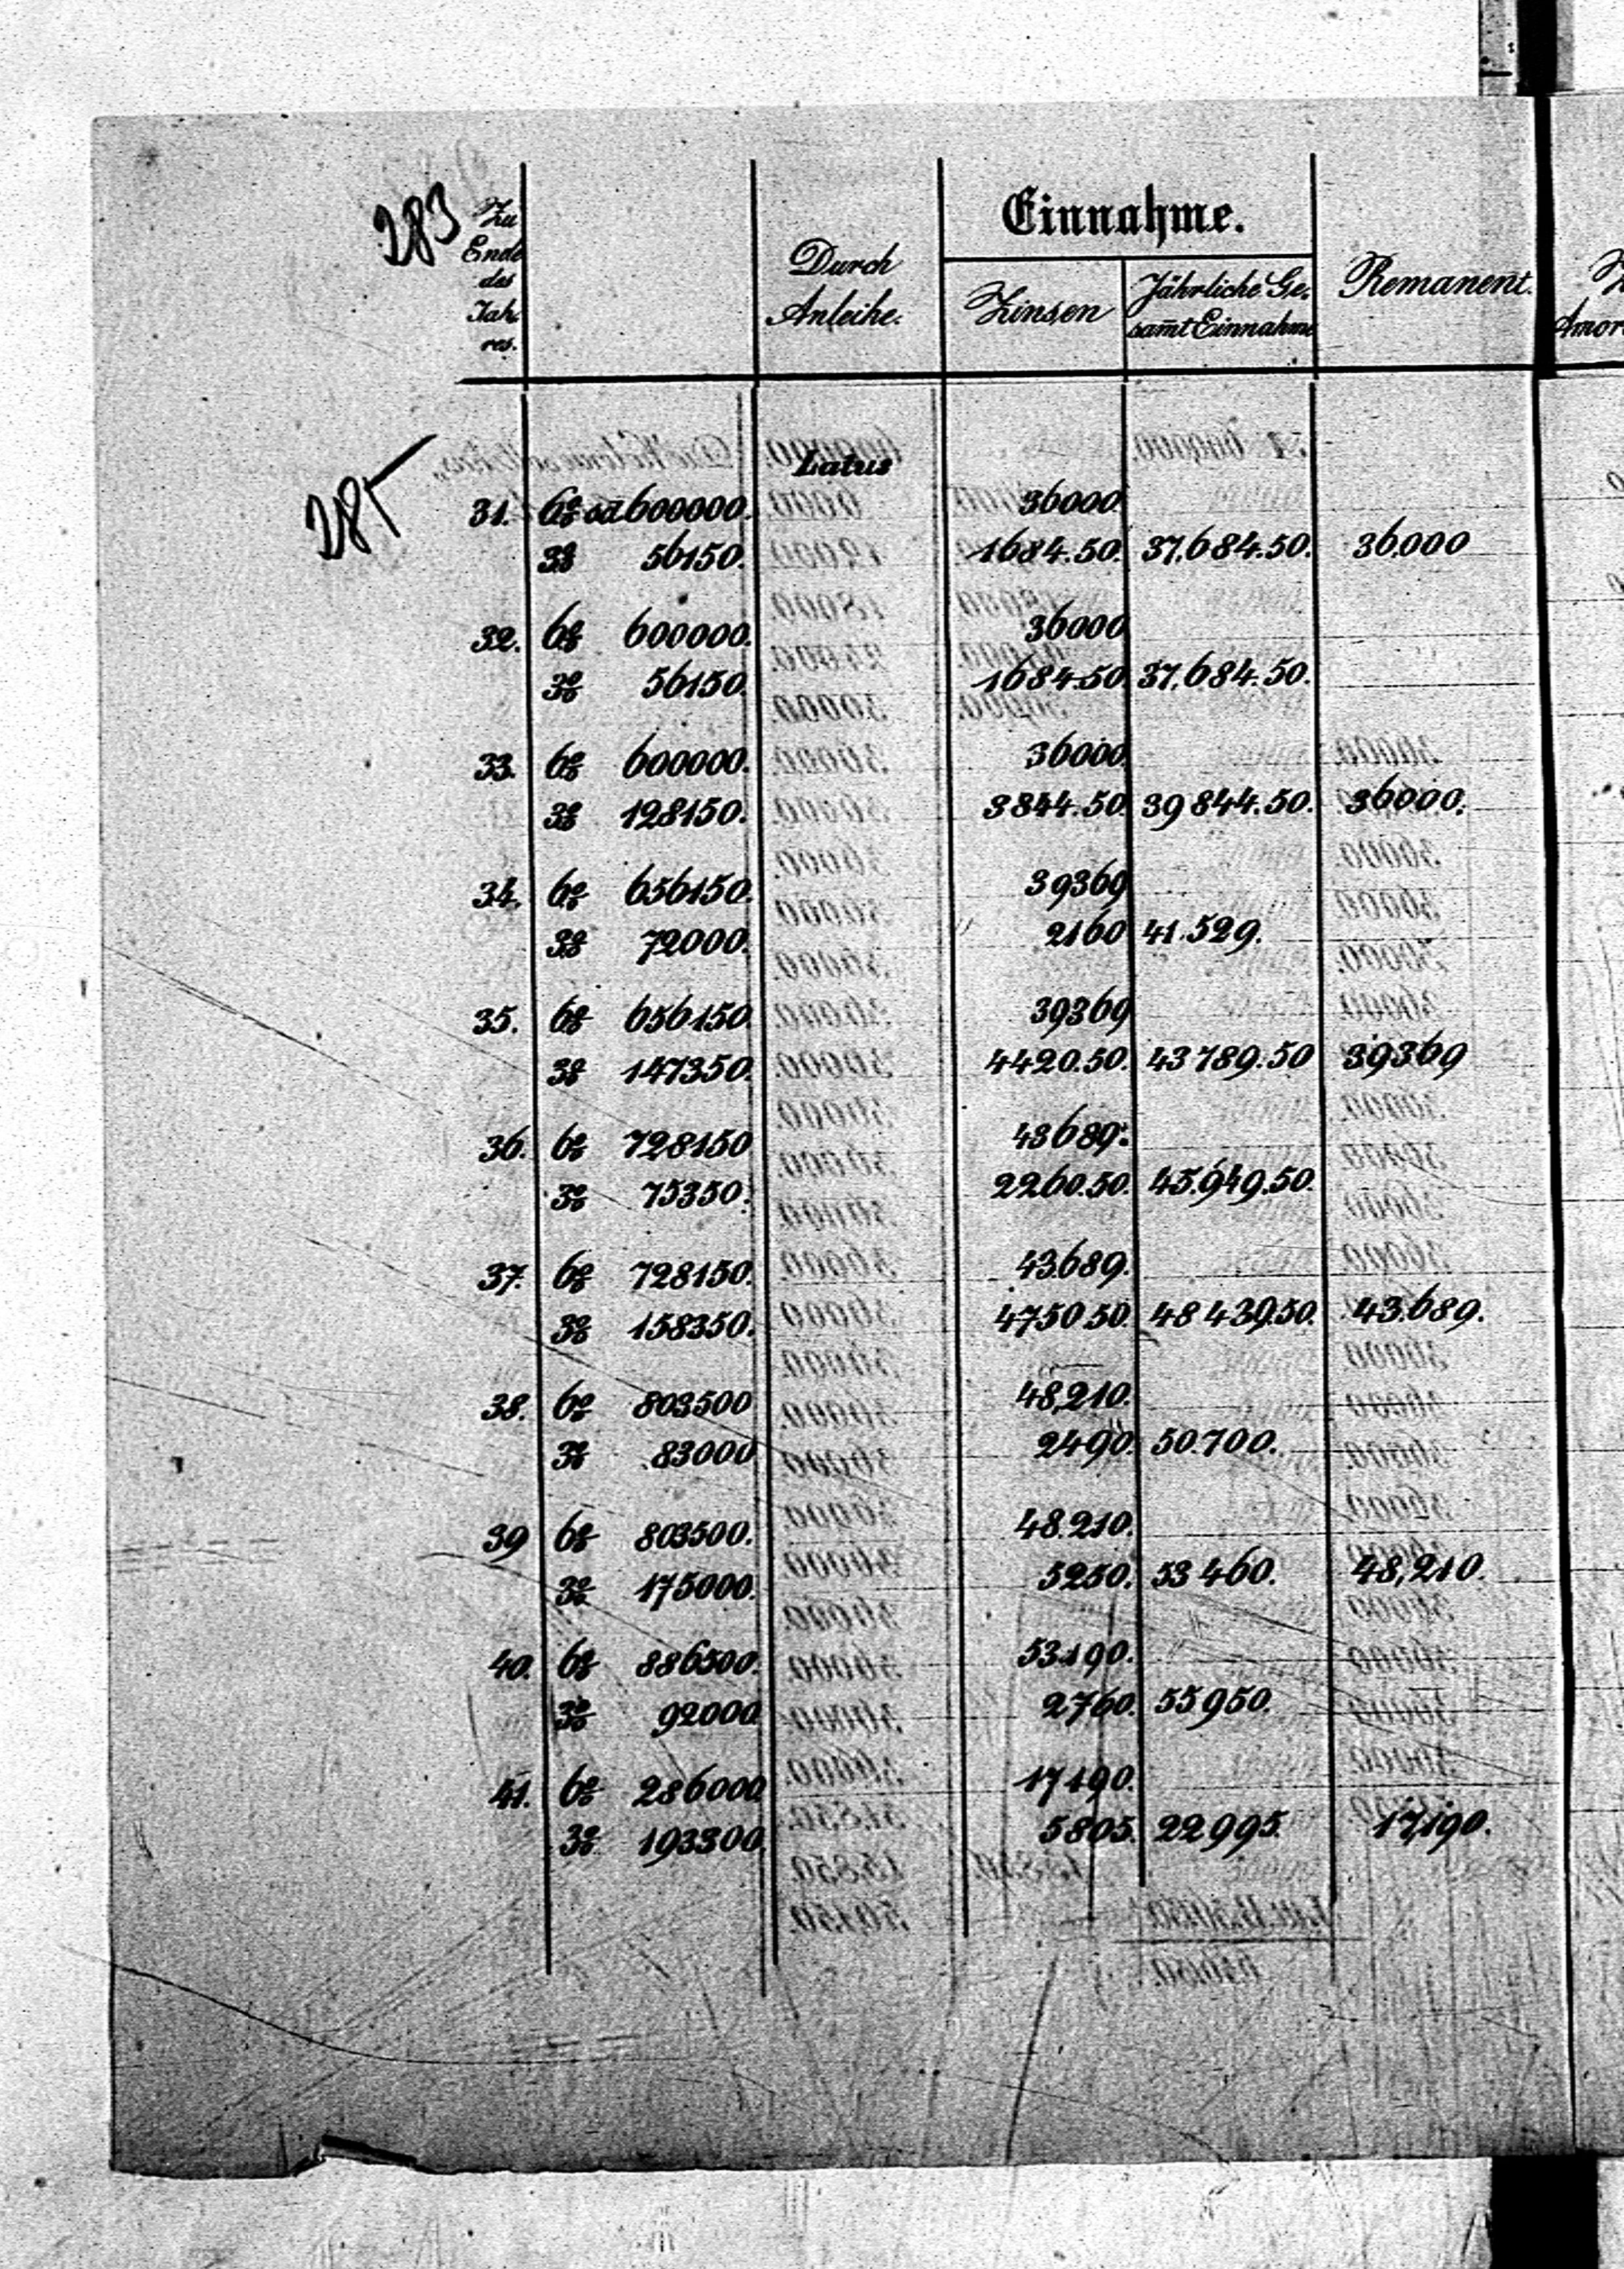 283
Zu Ende des Jah. res.
Durch Anleihe.
Einnahme.
Zinsen
Jährliche Ge. samt Einnahme
Remanent.
285
Latus
31. 6% 600000. 36000
3% 56150. 1684.50. 37,684.50. 36,000
32. 6% 600000. 36000
3% 56150. 1684.50 37,684.50.
33. 6% 600000. 36000
3% 128150. 3844.50. 39844.50. 36000.
34. 6% 656150. 39369
3% 72000. 2160 41.529.
35. 6% 656150. 39369
3% 147350. 4420.50. 43789.50 39369
36. 6% 728150 43689.
3% 75350. 2260.50. 45.949.50.
37. 6% 728150. 43.689.
3% 158350. 4750.50. 48439.50. 43.689.
38. 6% 803500 48,210.
3% 83000 2490. 50.700.
39 6% 803500. 48.210.
3% 175000. 5250. 53460. 48,210.
40. 6% 886500. 53190.
3% 92000 2760. 55950.
41. 6% 286000 17190.
3% 193300. 5805. 22995. 17,190.